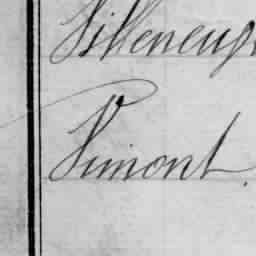 Villeneuv
Vimont.